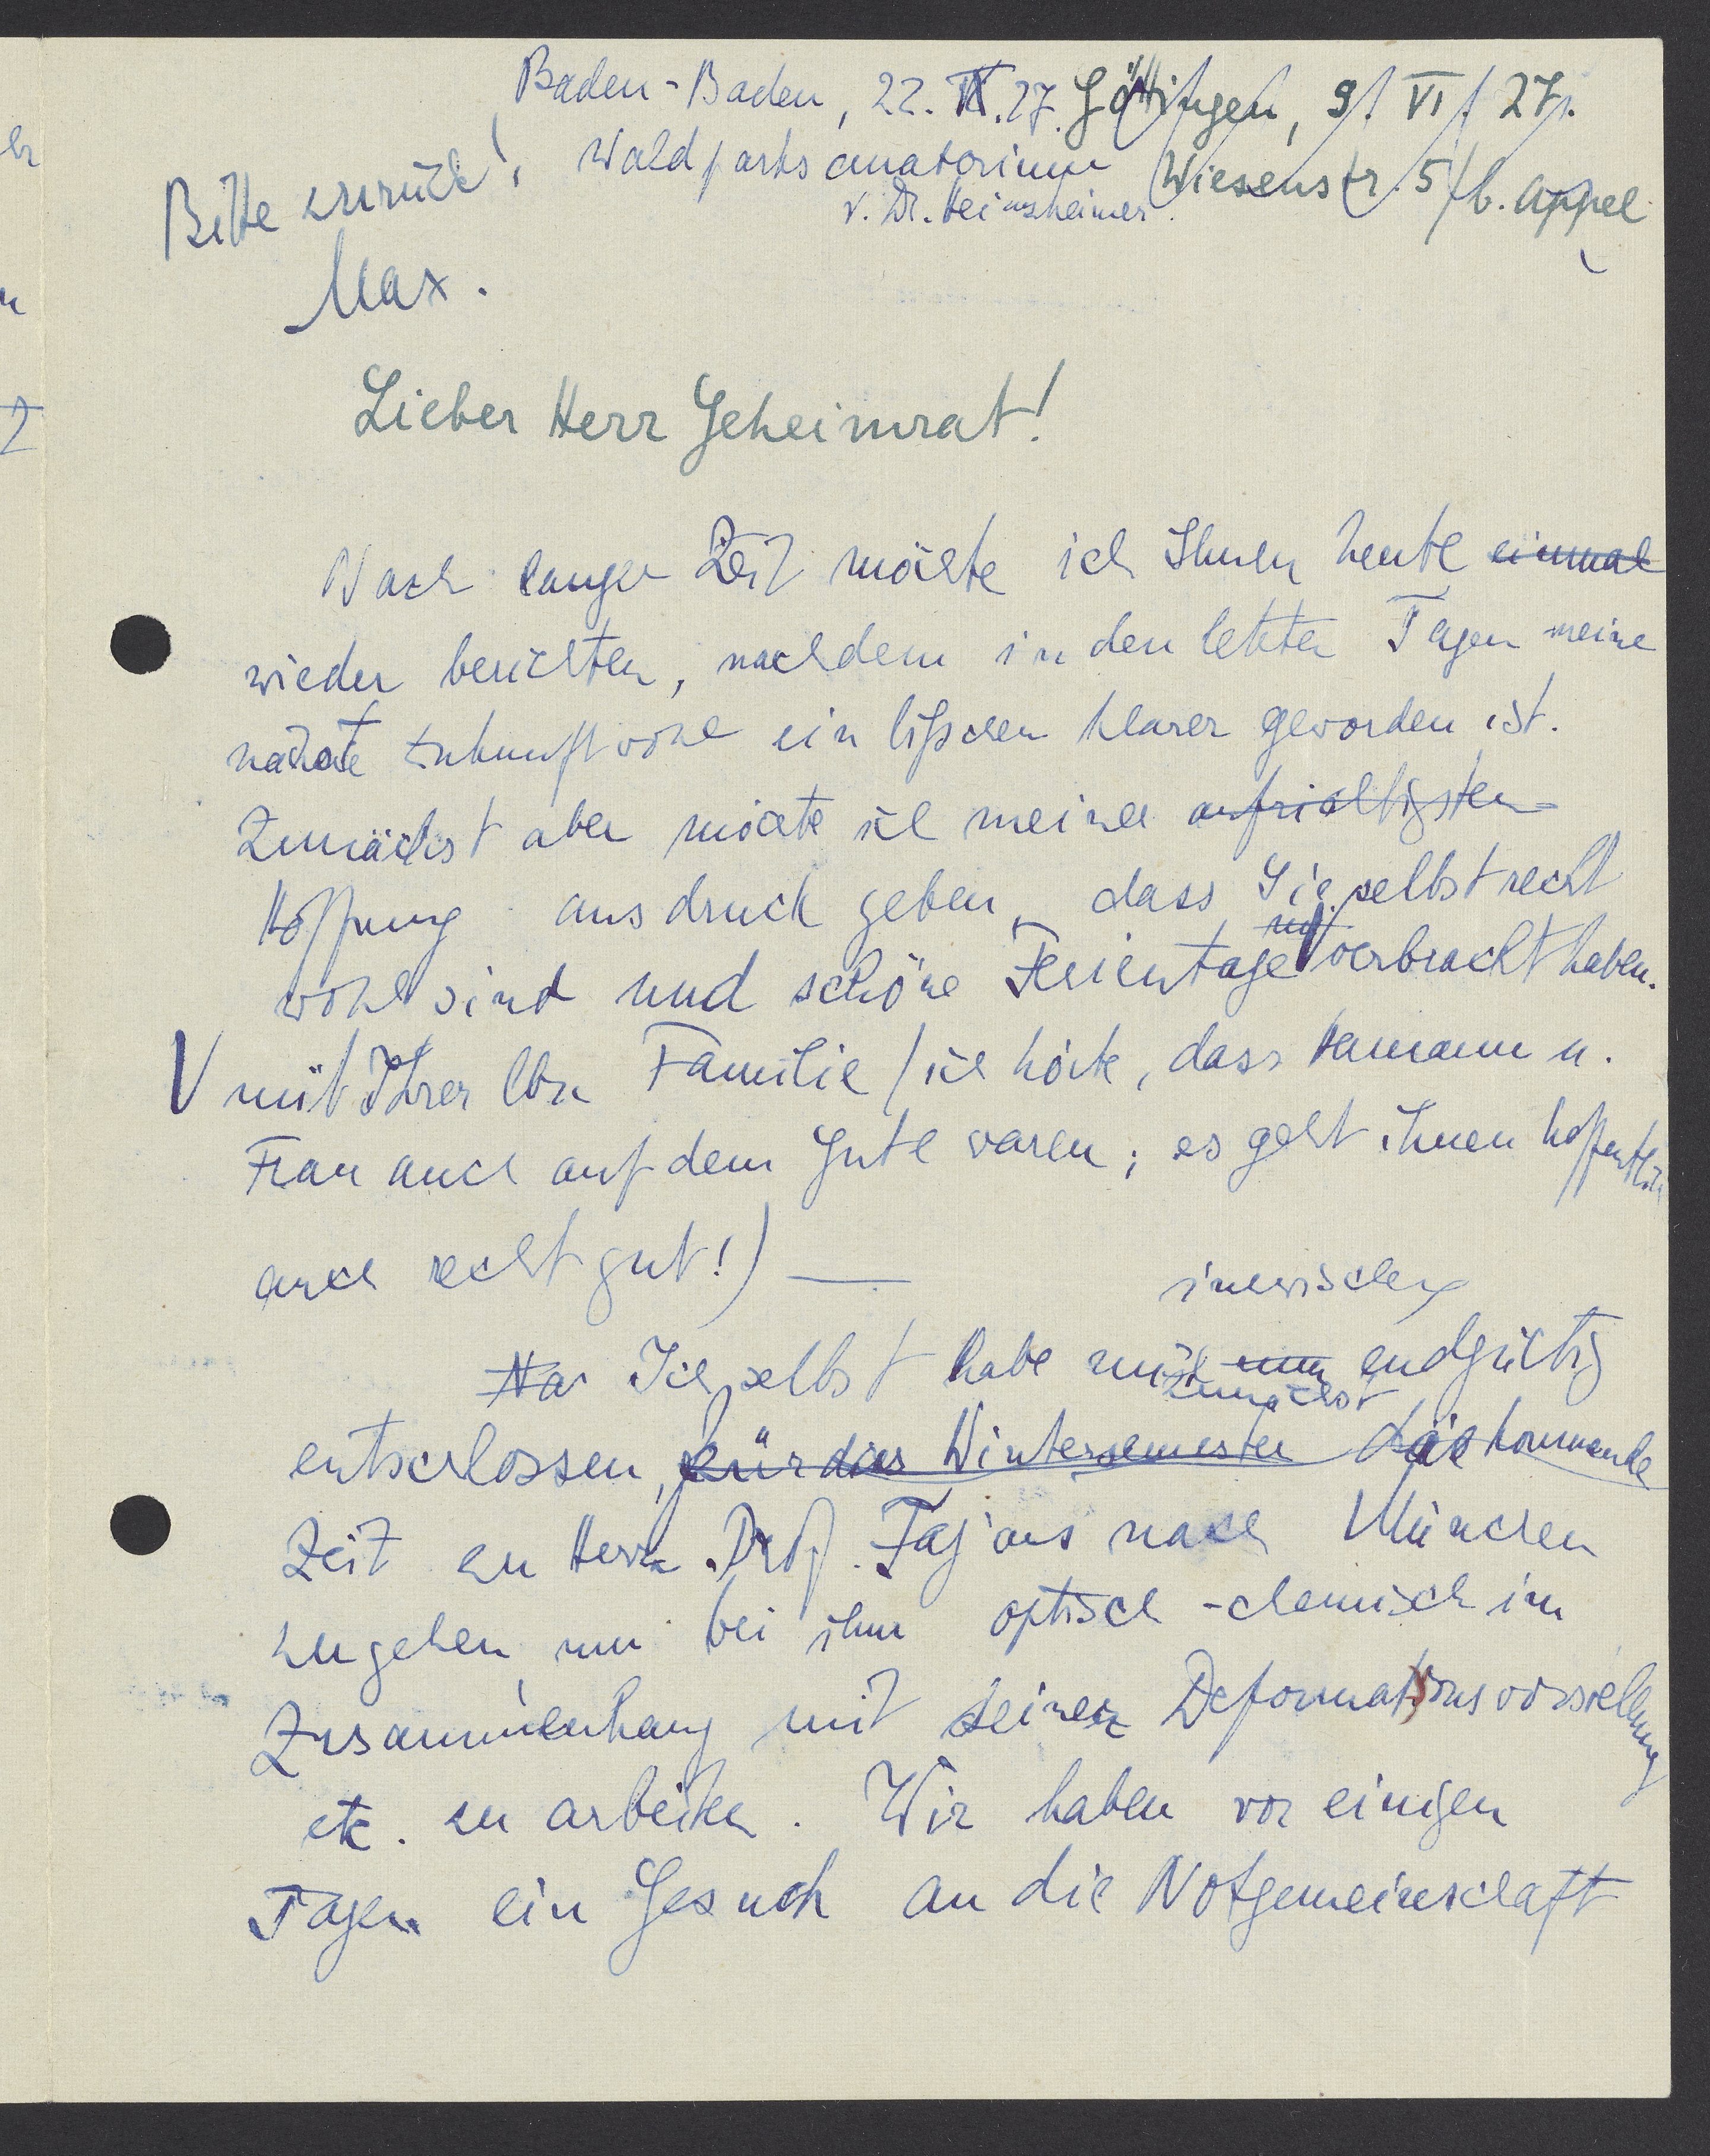 Baden-Baden, 22. IX. 27. Göttingen, 9. VI. 27.
Bitte zurück! Waldparksanatorium Wiesenstr. 5 / b. Appel
v. Dr. Heinsheimer.
Max.
Lieber Herr Geheimrat!
Nach langer Zeit möchte ich Ihnen heute einmal
wieder berichten, nachdem in den letzten Tagen meine
nächste Zukunft wohl ein bißchen klarer geworden ist.
Zunächst aber möchte ich meiner aufrichtigsten
Hoffnung ausdruck geben, dass Sie selbst recht
wohl sind und schöne Ferientage verbracht haben.
V mit Ihrer lbn Familie (ich hörte, dass Hermann u.
Frau auch auf dem Gute waren; es geht ihnen hoffentlich
auch recht gut!) —
inzwischen
Na Ich selbst habe mich nun endgültig
zunächst
entschlossen, für das Wintersemester das kommende
Zeit zu Herrn Prof. Fajans nach München
zu gehen um bei ihm optisch-chemisch im
Zusammenhang mit seiner Deformationsvorstellung
etc. zu arbeiten. Wir haben vor einigen
Tagen ein Gesuch an die Notgemeinschaft